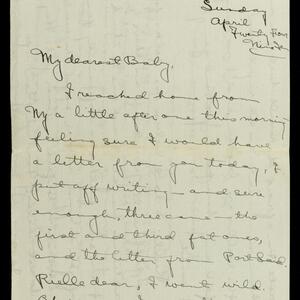 Sunday
April
Twenty Four
My dearest Baby,
I reached home from
Ny a little after one this morning
feeling sure I would have
a letter from you today, I
put off writing — and sure
enough, three came — the
first and third fat ones,
and the letter from Port Said.
Rielle dear, I went wild.